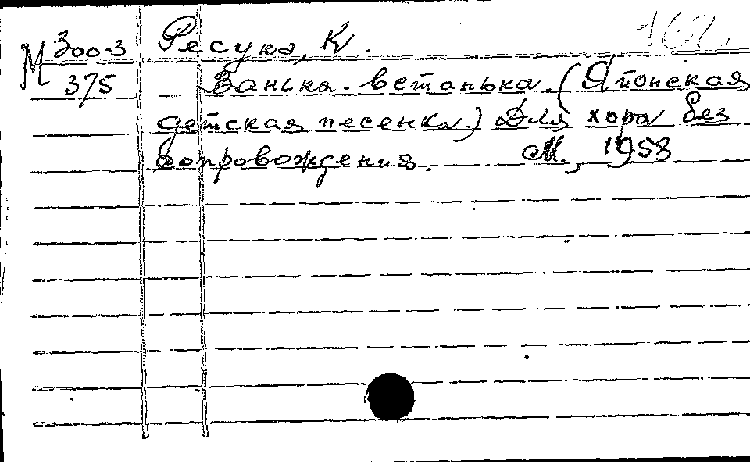 М 300-3 Ресука, К.
375 Ванька-встанька. (Японская
детская песенка) Для хора без
сопровождения. М., 1958